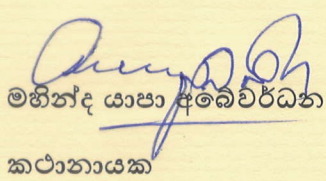 මහින්ද යාපා අබේවර්ධන
කථානායක